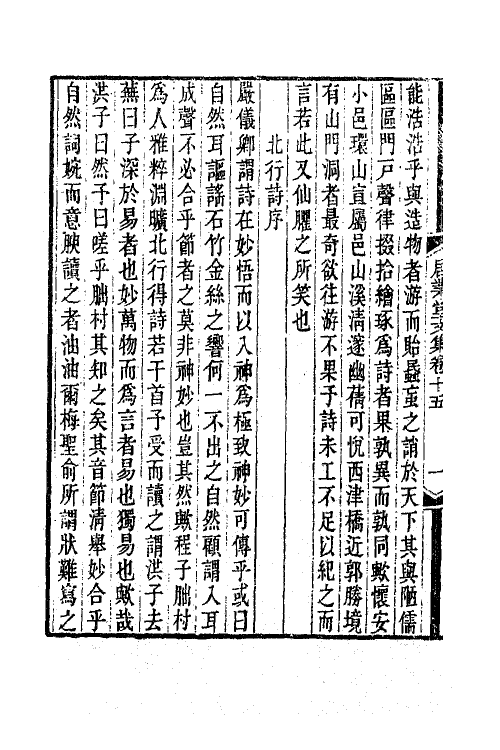 居業堂文集卷十五
一
能浩浩乎與造物者游而貽蟁䖟之誚於天下其與陋儒
區區門戸聲律掇拾繪琢爲詩者果孰異而孰同歟懷安
小邑環山宜屬邑山溪清邃幽蒨可悅西津橋近郭勝境
有山門洞者最奇欲往游不果予詩未工不足以紀之而
言若此又仙臞之所笑也
北行詩序
嚴儀卿謂詩在妙悟而以入神爲極致神妙可傳乎或曰
自然耳謳謠石竹金絲之響何一不出之自然顧謂入耳
成聲不必合乎節者之莫非神妙也豈其然歟程子朏村
爲人雅粹淵曠北行得詩若干首予受而讀之謂洪子去
蕪曰子深於易者也妙萬物而爲言者易也獨易也歟哉
洪子曰然予曰嗟乎朏村其知之矣其音節清舉妙合乎
自然詞婉而意腴讀之者油油爾梅聖俞所謂狀難寫之